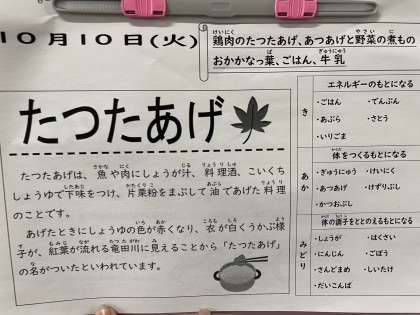 10月10日(火)
鶏肉のたつたあげ、あつあげと野菜の煮もの
おかかなっ葉、ごはん、牛乳
たつたあげ
たつたあげは、魚や肉にしょうが汁、料理酒、こいくち
しょうゆで下味をつけ、片栗粉をまぶして油であげた料理
のことです。
あげたときにしょうゆの色が赤くなり、衣が白くうかぶ様
子が、紅葉が流れる竜田川に見えることから「たつたあげ」
の名がついたといわれています。
き
エネルギーのもとになる
・ごはん ・でんぷん
・あぶら ・さとう
・いりごま
あか
体をつくるもとになる
・ぎゅうにゅう ・けいにく
・あつあげ ・けずりぶし
・かつおぶし
みどり
体の調子をととのえるもとになる
・しょうが ・はくさい
・にんじん ・ごぼう
・さんどまめ ・しいたけ
・だいこんば